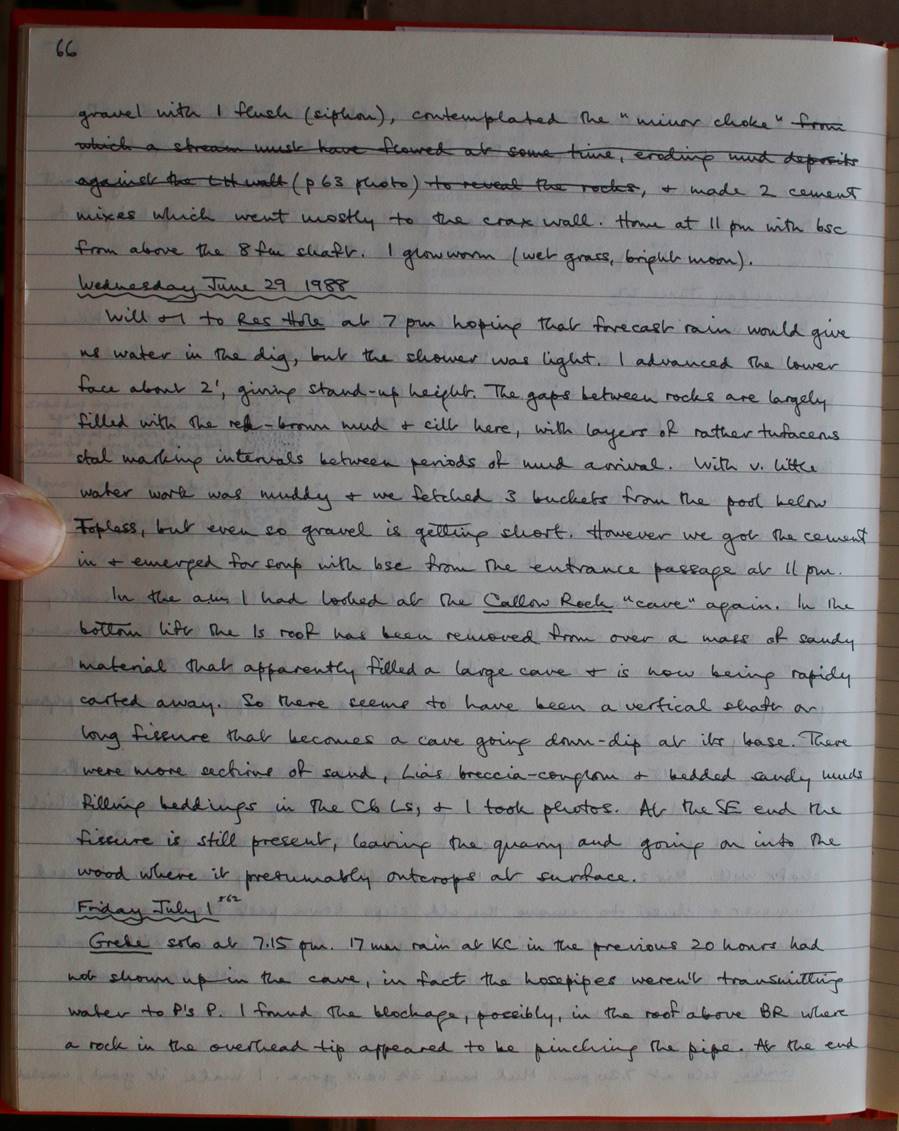 66
gravel with 1 flush (siphon), contemplated the "minor choke" from
which a stream must have flowed at some time, eroding mud deposits
against the LH wall (p 63 photo) to reveal the rocks, + made 2 cement
mixes which went mostly to the crax wall. Home at 11 pm with bsc
from above the 8 fm shaft. 1 glowworm (wet grass, bright moon).
Wednesday June 29 1988
Will + I to Res Hole at 7 pm hoping that forecast rain would give
us water in the dig, but the shower was light. I advanced the lower
face about 2', giving stand-up height. The gaps between rocks are largely
filled with the red-brown mud + silt here, with layers of rather tufaceus
stal marking intervals between periods of mud arrival. With v. little
water work was muddy + we fetched 3 buckets from the pool below
Topless, but even so gravel is getting short. However we got the cement
in + emerged for soup with bsc from the entrance passage at 11 pm.
In the a.m. I had looked at the Callow Rock "cave" again. In the
bottom lift the ls roof has been removed from over a mass of sandy
material that apparently filled a large cave + is now being rapidly
carted away. So there seems to have been a vertical shaft or
long fissure that becomes a cave going down-dip at its base. There
were more sections of sand, Lias breccia-conglom + bedded sandy muds
filling beddings in the Cb Ls, + I took photos. At the SE end the
fissure is still present, leaving the quarry and going on into the
wood where it presumably outcrops at surface.
Friday July 1 562
Grebe solo at 7.15 pm. 17 mm rain at KC in the previous 20 hours had
not shown up in the cave, in fact the hosepipes weren't transmitting
water to P's P. I found the blockage, possibly, in the roof above BR where
a rock in the overhead tip appeared to be pinching the pipe. At the end